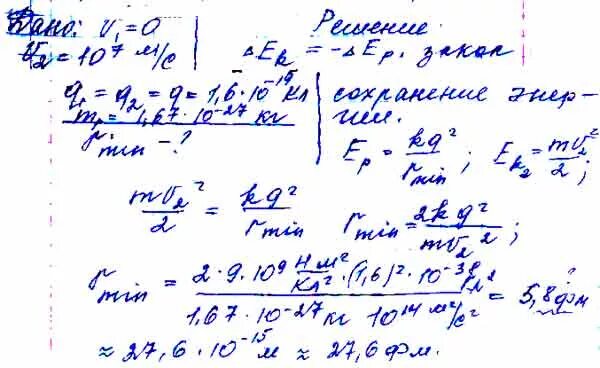 Дано: v₁ = 0
v₂ = 10⁷ м/с
q₁ = q₂ = q = 1,6·10⁻¹⁹ Кл
m₁ = 1,67·10⁻²⁷ кг
r_min - ?
Решение
ΔE_k = -ΔE_p. закон
сохранение энер-
гии.
E_p = kq²/r_min ; E_k₂ = mv₂²/2 ;
mv₂²/2 = kq²/r_min r_min = 2kq²/mv₂² ;
r_min = 2·9·10⁹ Н м²/Кл² ·(1,6)²·10⁻³⁸ Кл² / 1,67·10⁻²⁷ кг 10¹⁴ м²/с² = 5,8 фм
≈ 27,6·10⁻¹⁵ м ≈ 27,6 фм.